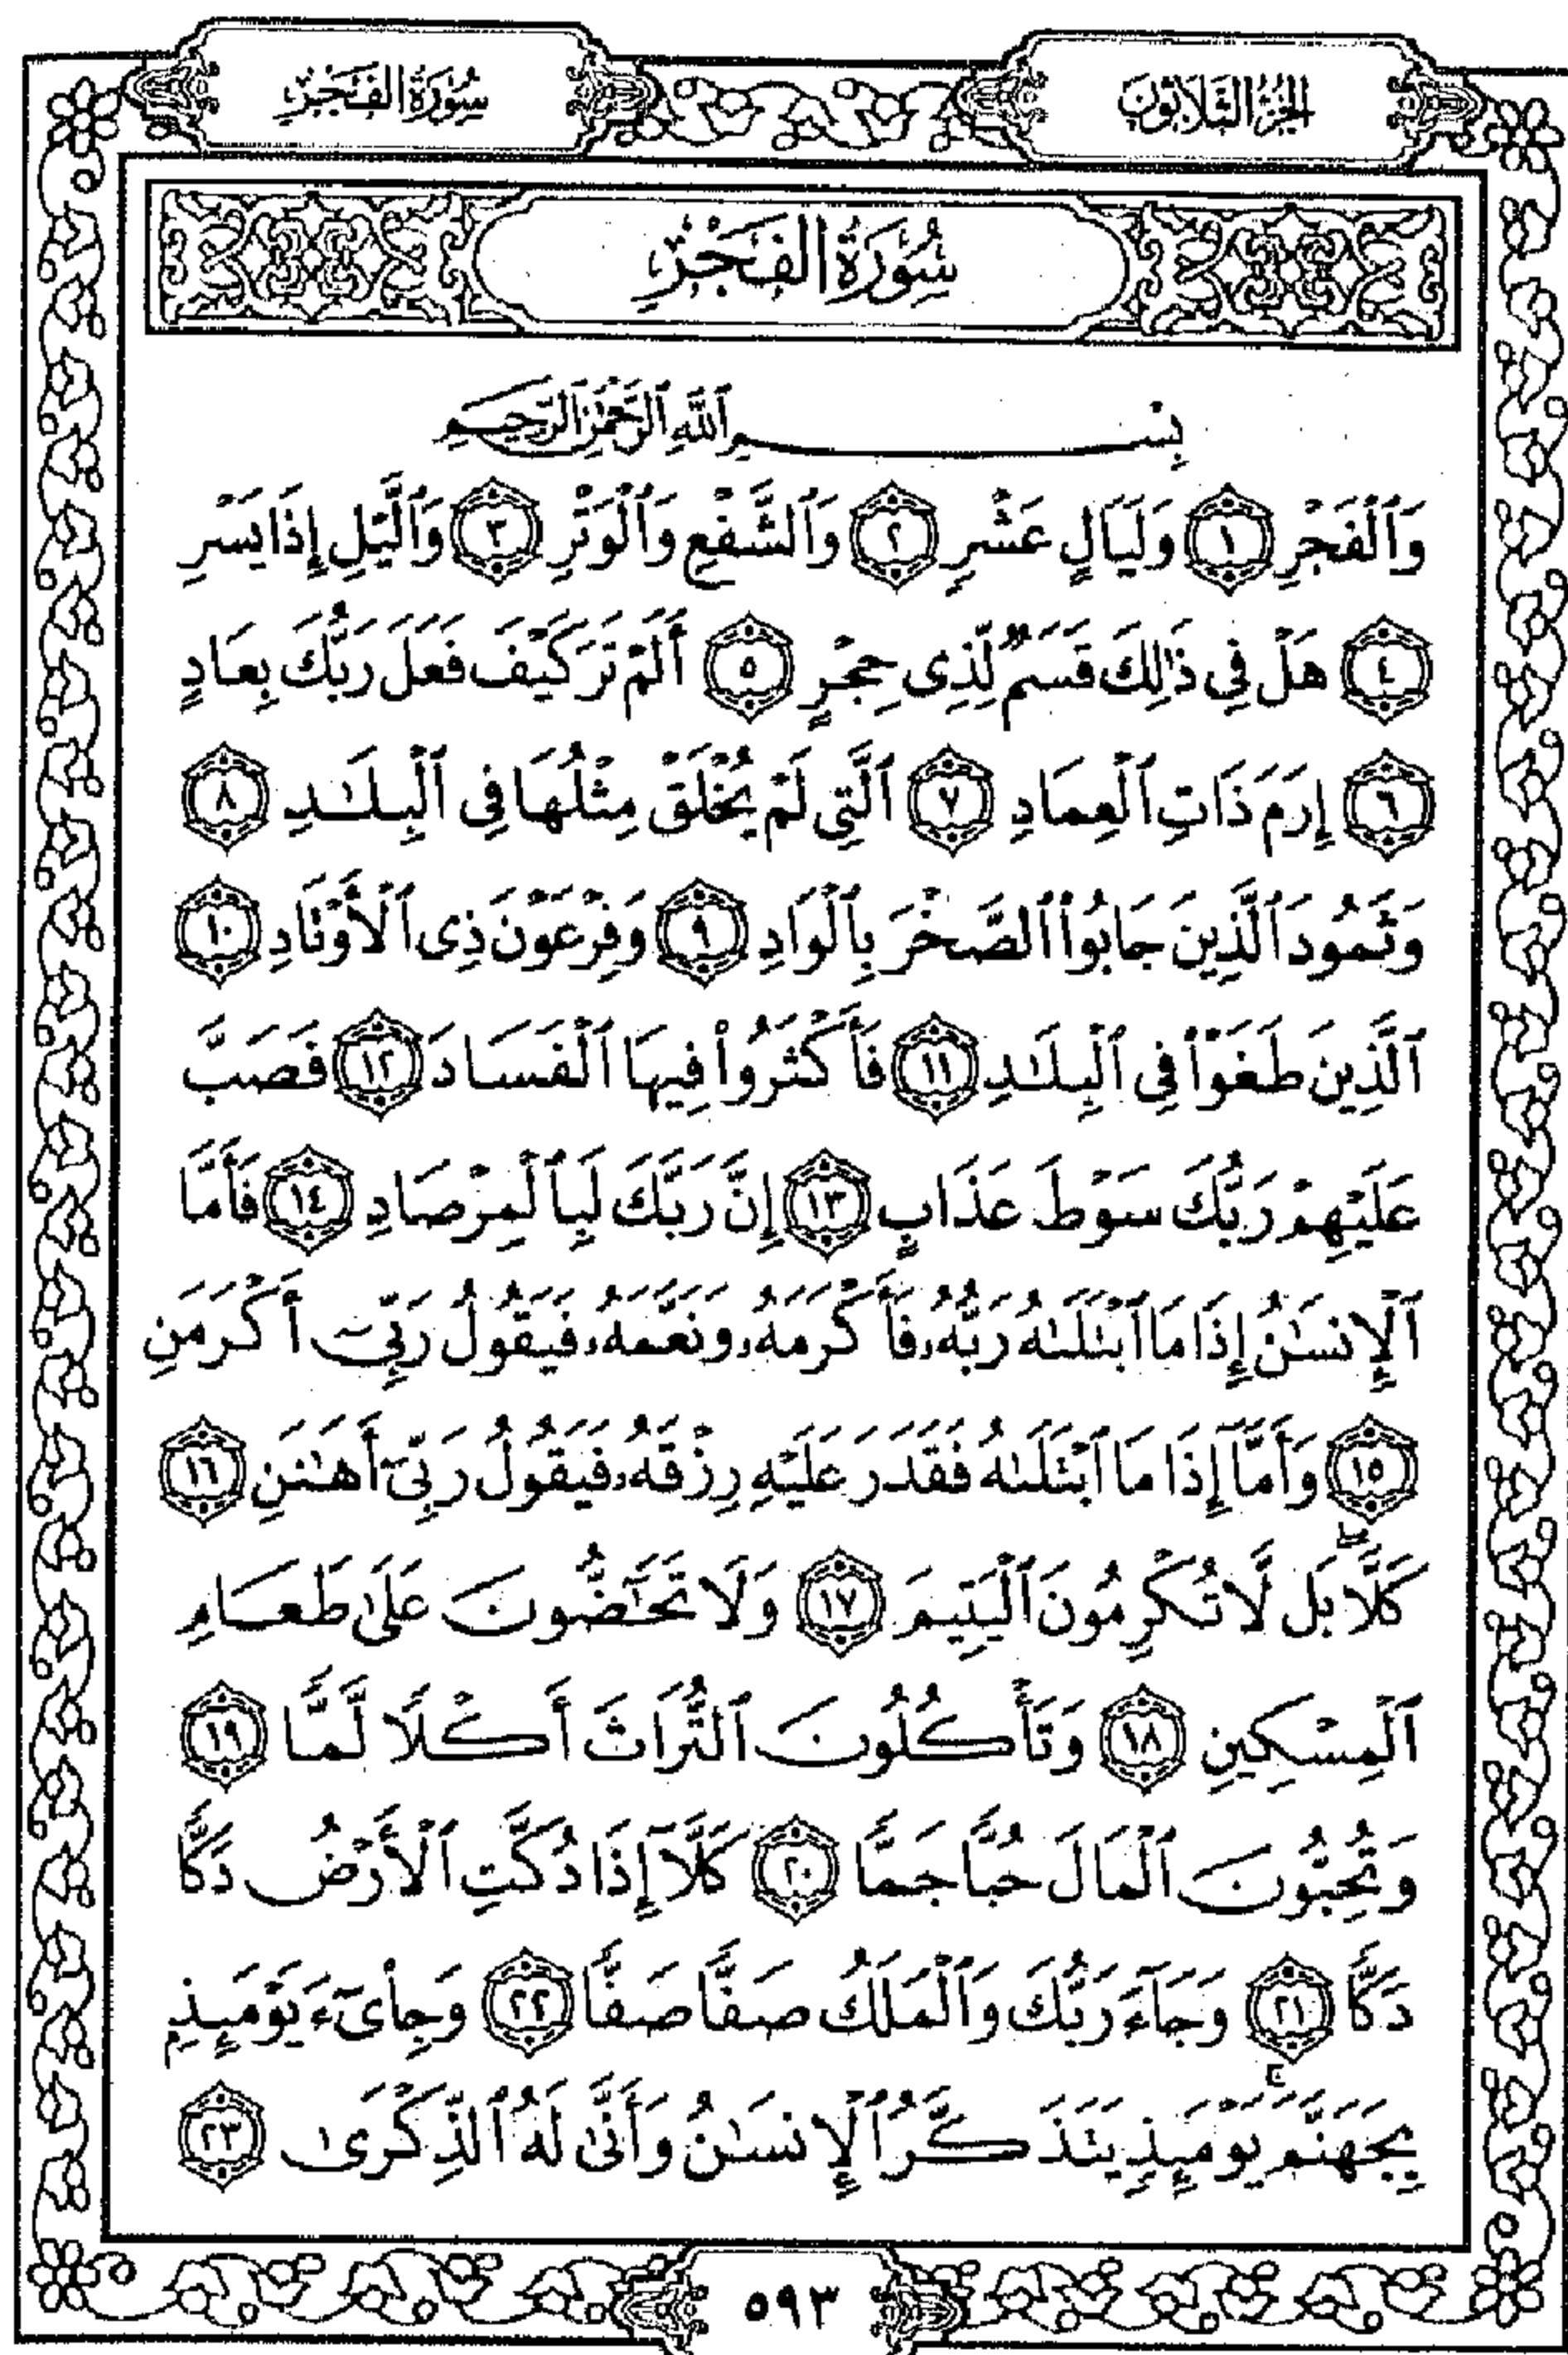 الجزء الثلاثون
سورة الفجر
سُورَةُ الفَجْرِ
بِسْمِ ٱللَّهِ ٱلرَّحْمَٰنِ ٱلرَّحِيمِ
وَٱلْفَجْرِ ١ وَلَيَالٍ عَشْرٍ ٢ وَٱلشَّفْعِ وَٱلْوَتْرِ ٣ وَٱلَّيْلِ إِذَا يَسْرِ
٤ هَلْ فِي ذَٰلِكَ قَسَمٌ لِّذِى حِجْرٍ ٥ أَلَمْ تَرَ كَيْفَ فَعَلَ رَبُّكَ بِعَادٍ
٦ إِرَمَ ذَاتِ ٱلْعِمَادِ ٧ ٱلَّتِى لَمْ يُخْلَقْ مِثْلُهَا فِى ٱلْبِلَٰدِ ٨
وَثَمُودَ ٱلَّذِينَ جَابُوا۟ ٱلصَّخْرَ بِٱلْوَادِ ٩ وَفِرْعَوْنَ ذِى ٱلْأَوْتَادِ ١٠
ٱلَّذِينَ طَغَوْا۟ فِى ٱلْبِلَٰدِ ١١ فَأَكْثَرُوا۟ فِيهَا ٱلْفَسَادَ ١٢ فَصَبَّ
عَلَيْهِمْ رَبُّكَ سَوْطَ عَذَابٍ ١٣ إِنَّ رَبَّكَ لَبِٱلْمِرْصَادِ ١٤ فَأَمَّا
ٱلْإِنسَٰنُ إِذَا مَا ٱبْتَلَىٰهُ رَبُّهُۥ فَأَكْرَمَهُۥ وَنَعَّمَهُۥ فَيَقُولُ رَبِّىٓ أَكْرَمَنِ
١٥ وَأَمَّآ إِذَا مَا ٱبْتَلَىٰهُ فَقَدَرَ عَلَيْهِ رِزْقَهُۥ فَيَقُولُ رَبِّىٓ أَهَٰنَنِ ١٦
كَلَّا ۖ بَل لَّا تُكْرِمُونَ ٱلْيَتِيمَ ١٧ وَلَا تَحَٰٓضُّونَ عَلَىٰ طَعَامِ
ٱلْمِسْكِينِ ١٨ وَتَأْكُلُونَ ٱلتُّرَاثَ أَكْلًا لَّمًّا ١٩
وَتُحِبُّونَ ٱلْمَالَ حُبًّا جَمًّا ٢٠ كَلَّآ إِذَا دُكَّتِ ٱلْأَرْضُ دَكًّا
دَكًّا ٢١ وَجَآءَ رَبُّكَ وَٱلْمَلَكُ صَفًّا صَفًّا ٢٢ وَجِا۟ىٓءَ يَوْمَئِذٍۭ
بِجَهَنَّمَ ۚ يَوْمَئِذٍ يَتَذَكَّرُ ٱلْإِنسَٰنُ وَأَنَّىٰ لَهُ ٱلذِّكْرَىٰ ٢٣
٥٩٣